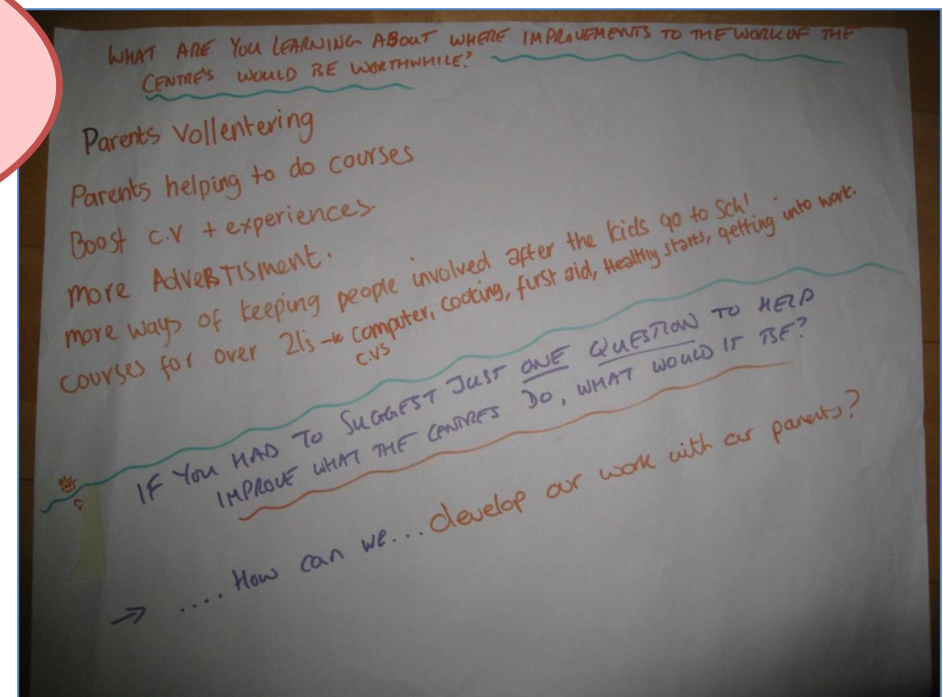 WHAT ARE YOU LEARNING ABOUT WHERE IMPROVEMENTS TO THE WORK OF THE
CENTRE'S WOULD BE WORTHWHILE?
Parents Vollentering
Parents helping to do courses
Boost c.v + experiences.
more AdveRTISment.
more ways of keeping people involved after the kids go to Sch!
courses for over 21s → computer, cooking, first aid, Healthy starts, getting into work.
c.vs
IF YOU HAD TO SUGGEST JUST ONE QUESTION TO HELP
IMPROVE WHAT THE CENTRES DO, WHAT WOULD IT BE?
→ .... How can we... develop our work with our parents?